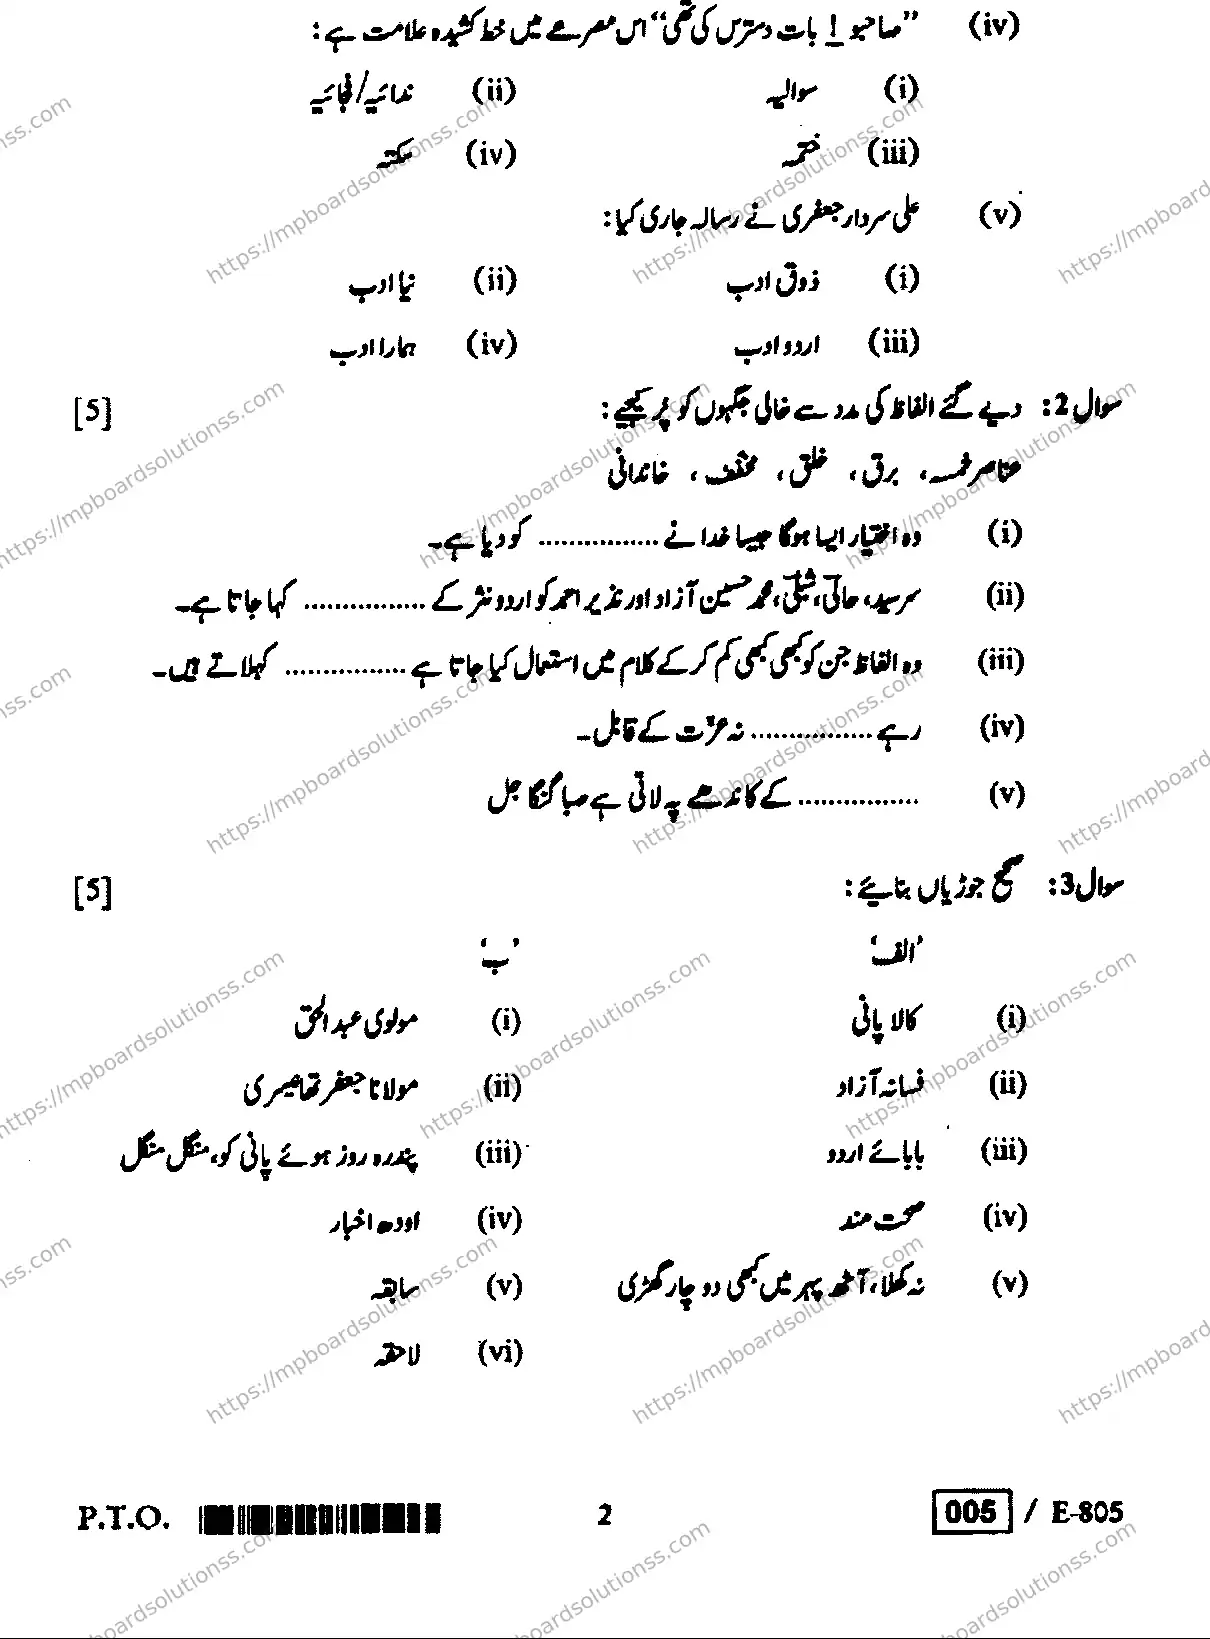 (iv) ”صاحبو ! بات دسترس کی تھی“ اس مصرعے میں خط کشیدہ علامت ہے :
(i) سوالیہ (ii) ندائیہ/فجائیہ
(iii) ختمہ (iv) سکتہ
(v) علی سردار جعفری نے رسالہ جاری کیا :
(i) ذوق ادب (ii) نیا ادب
(iii) اردو ادب (iv) ہمارا ادب
سوال 2: دیے گئے الفاظ کی مدد سے خالی جگہوں کو پُر کیجیے : [5]
عناصر خمسہ ، برق ، خلق ، مخفف ، خاندانی
(i) وہ اختیار ایسا ہوگا جیسا خدا نے ................ کو دیا ہے۔
(ii) سرسید، حالیؔ، شبلیؔ، محمد حسین آزاد اور نذیر احمد کو اردو نثر کے ................ کہا جاتا ہے۔
(iii) وہ الفاظ جن کو کبھی کبھی کم کر کے کلام میں استعمال کیا جاتا ہے ................ کہلاتے ہیں۔
(iv) رہے ................ نہ عزّت کے قابل۔
(v) ................ کے کاندھے پہ لائی ہے صبا گنگا جل
سوال 3: صحیح جوڑیاں بنائیے : [5]
’الف‘ ’ب‘
(i) کالا پانی (i) مولوی عبدالحق
(ii) فسانہ آزاد (ii) مولانا جعفر تھانیسری
(iii) بابائے اردو (iii) پندرہ روز ہوئے پانی کو، منگل منگل
(iv) صحت مند (iv) اودھ اخبار
(v) نہ کھلا، آٹھ پہر میں کبھی دو چار گھڑی (v) سابقہ
(vi) لاحقہ
P.T.O. 2 005 / E-805
https://mpboardsolutionss.com